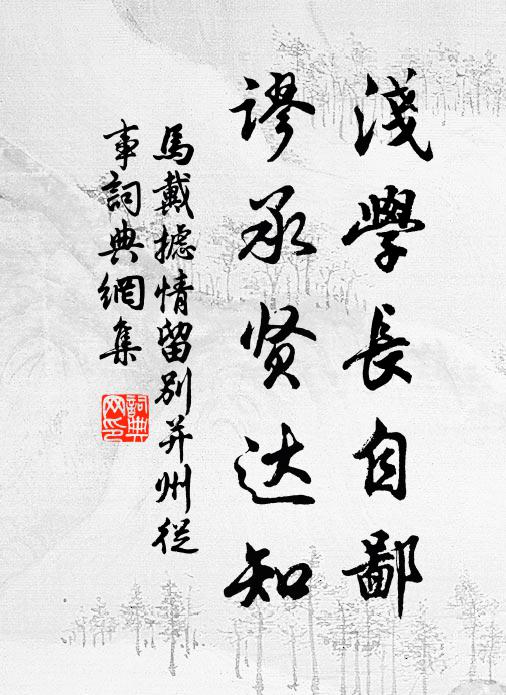 淺學長自鄙
謬承贤达知
馬戴攄情留别并州從
事詞典網集
詞典
网印